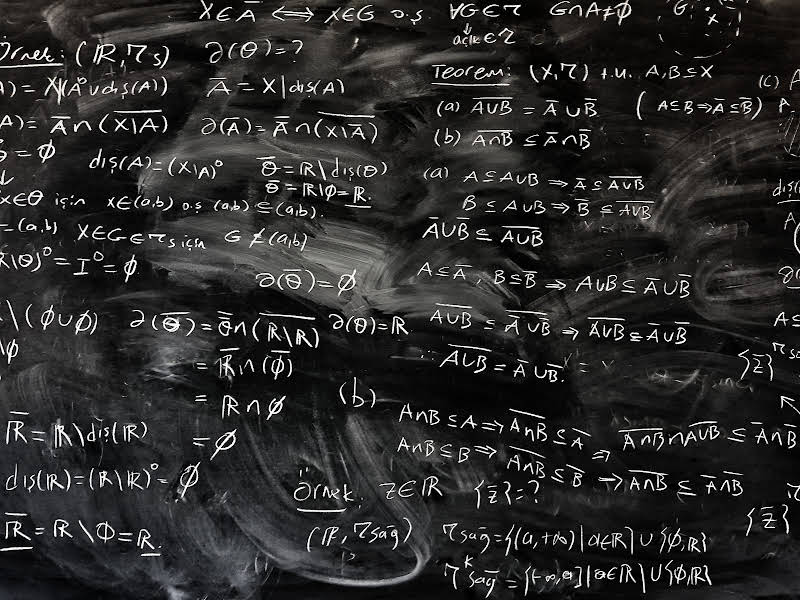 x∈A̅ ⟺ x∈G ö.ş. ∀G∈τ G∩A≠∅
açık∈τ
G. x
Örnek: (ℝ, τs) ∂(θ)=?
A) = X\(A°∪dış(A)) A̅ = X\dış(A)
A) = A̅∩(X\A)‾ ∂(A̅) = A̅∩(X\A̅)‾
= ∅ dış(A) = (X\A)° θ̅ = ℝ\dış(θ)
θ̅ = ℝ\∅ = ℝ.
x∈θ için x∈(a,b) ö.ş (a,b)⊆(a,b).
=(a,b) x∈G∈τs için G⊈(a,b)
\θ)° = I° = ∅
∂(θ̅) = ∅
\(∅∪∅) ∂(θ̅) = θ̅∩(ℝ\ℝ)‾ ∂(θ) = ℝ.
\∅ = ℝ̅∩(∅̅)
= ℝ∩∅
= ∅
ℝ̅ = ℝ\dış(ℝ)
dış(ℝ) = (ℝ\ℝ)° = ∅
ℝ̅ = ℝ\∅ = ℝ.
Teorem: (X,τ) t.u. A,B⊆X
(a) (A∪B)‾ = A̅∪B̅ (A⊆B⇒A̅⊆B̅)
(b) (A∩B)‾ ⊆ A̅∩B̅
(a) A⊆A∪B ⇒ A̅⊆(A∪B)‾
B⊆A∪B ⇒ B̅⊆(A∪B)‾
A̅∪B̅ ⊆ (A∪B)‾
A⊆A̅, B⊆B̅ ⇒ A∪B⊆A̅∪B̅
(A∪B)‾ ⊆ (A̅∪B̅)‾ ⇒ (A∪B)‾ ⊆ A̅∪B̅
∴ (A∪B)‾ = A̅∪B̅.
(b) A∩B⊆A ⇒ (A∩B)‾⊆A̅
A∩B⊆B ⇒ (A∩B)‾⊆B̅ ⇒ (A∩B)‾∩(A∪B)‾ ⊆ A̅∩B̅
⇒ (A∩B)‾ ⊆ A̅∩B̅
Örnek. z∈ℝ {z̅}=?
(ℝ, τsağ) τsağ = {(a,+∞)|a∈ℝ}∪{∅,ℝ}
τᵏsağ = {(-∞,a]|a∈ℝ}∪{∅,ℝ}
(c) A
A.
dış(
A
∂(
A⊆
{z̅} τsağ
{z̅}